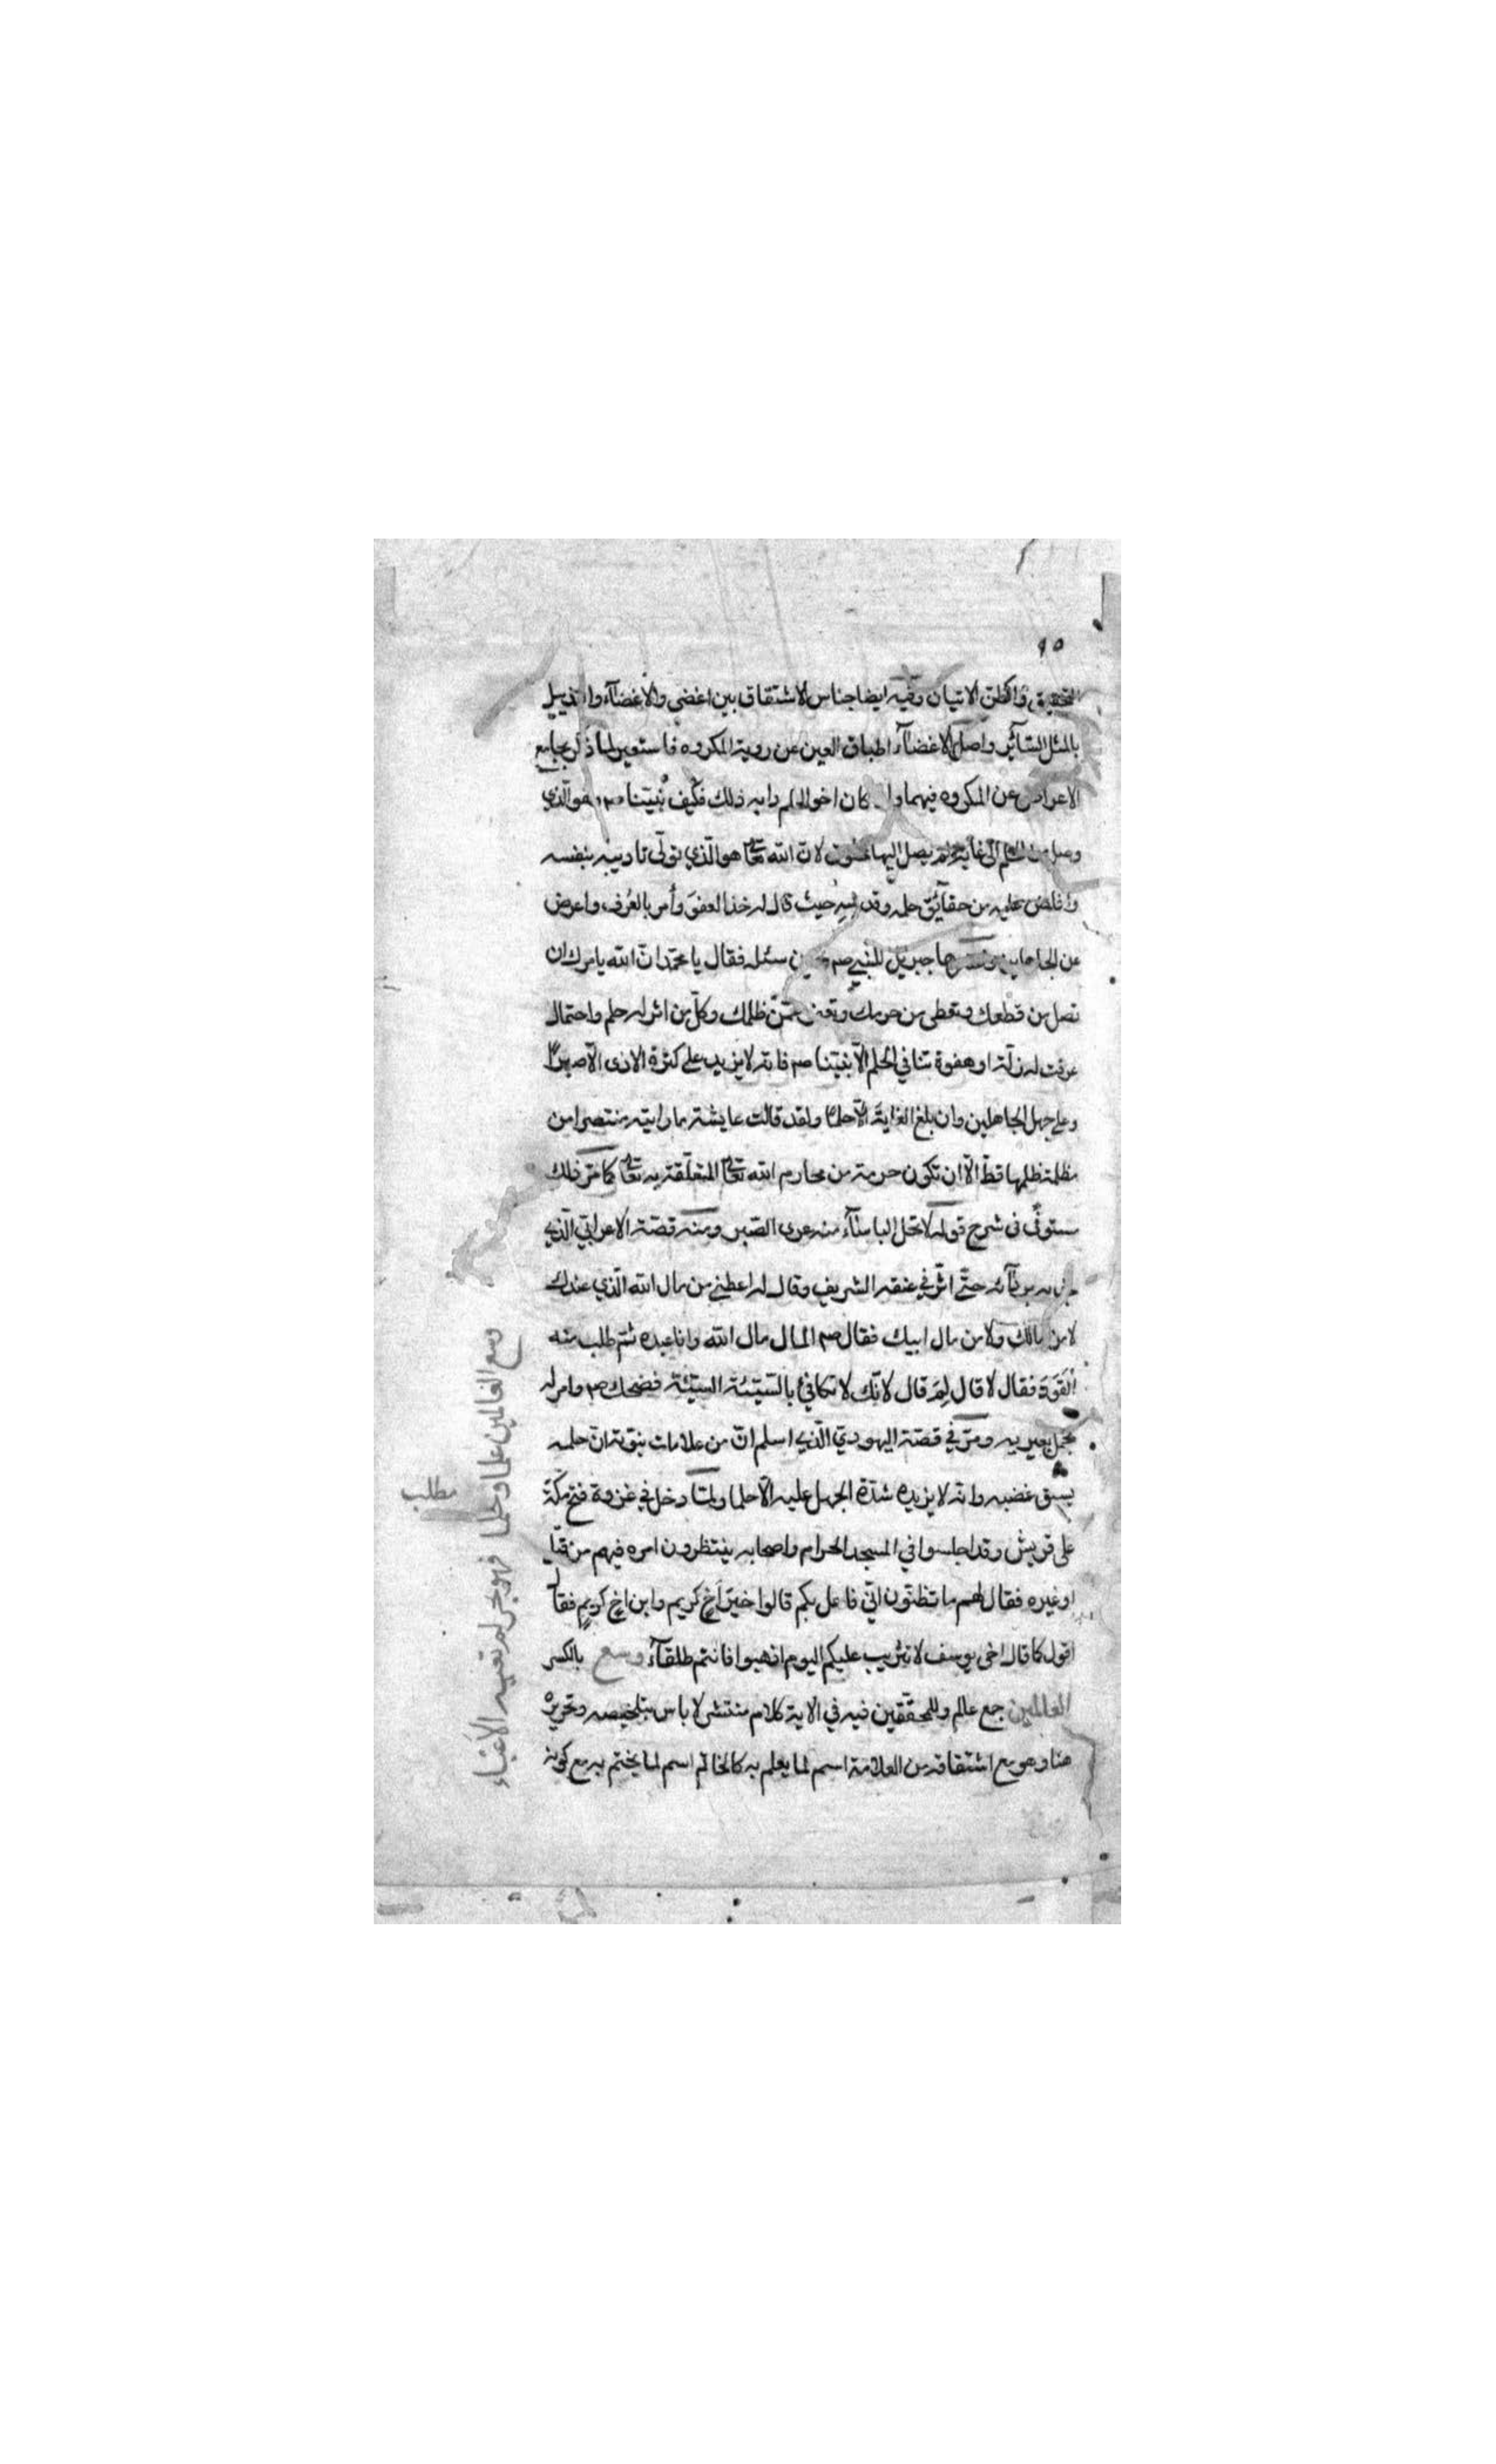 ٩٥
التحقيق والظن الاتيان وفيه ايضا جناس الاشتقاق بين اغضى والاغضآء والتذييل
بالمثل السآئر واصل الاغضآء اطباق العين عن روية المكروه فاستعير لما ذكر بجامع
الاعراض عن المكروه فيهما واذا كان اخو الحلم دابه ذلك فكيف بنبيّنا صم هو الّذي
وصل من الحلم الى غاية لم يصل اليها لانّ الله تعا هو الّذي تولّى تاديبه بنفسه
وافاض عليه من حقآئق حلمه وقد حيث قال له خذ العفوَ وأمر بالعُرف واعرض
عن الجاهلين وفسّرها جبريل للنّبي صم حين سئله فقال يا محمّد انّ الله يامرك ان
تصل من قطعك وتعطي من حرمك وتعفو عمّن ظلمك وكلّ من اثر له حلم واحتمال
عرفت له زلّة او هفوة تنافي الحلم الّا نبيّنا صم فانه لا يزيد على كثرة الاذى الّا صبرًا
وعلى جهل الجاهلين وان بلغ الغاية الّا حلمًا ولقد قالت عايشة ما رايته منتصرا من
مظلمة ظلمها قطّ الّا ان تكون حرمة من محارم الله تعا المتعلّقة به تعا كما مرّ ذلك
مستوفًى في شرح قوله لا تحل الباسآء منه عرى الصّبر ومنه قصّة الاعرابيّ الّذي
جبذه بردآئه حتّى اثّر في عنقه الشريف وقال له اعطني من مال الله الّذي عندك
لا من مالك ولا من مال ابيك فقال صم المال مال الله وانا عبده ثم طلب منه
القَوَدَ فقال لا قال لِمَ قال لانّك لا تكافئ بالسّيّئة السيّئة فضحك صم وامر له
بحمل بعيريه ومرّ في قصّة اليهوديّ الّذي اسلم انّ من علامات نبوّته انّ حلمه
يسبق غضبه وانه لا يزيده شدّة الجهل عليه الّا حلما ولمّا دخل في غزوة فتح مكّة
على قريش وقد اجلسوا في المسجد الحرام واصحابه ينتظرون امره فيهم من قتل
او غيره فقال لهم ما تظنّون انّي فاعل بكم قالوا خيرًا أخٍ كريم وابن اخٍ كريمٍ فقال
اقول كما قال اخي يوسف لا تثريب عليكم اليوم اذهبوا فانتم طلقآء وسع بالكسر
العالمين جمع عالم وللمحقّقين فيه في الاية كلام منتشر لا باس بتلخيصه وتحريره
هنا وهو مع اشتقاقه من العلامة اسم لما يعلم به كالخاتم اسم لما يختم به مع كونه
مطلب
وسع العالمين علما وحلما فهو بحر لم تعيه الاعباء